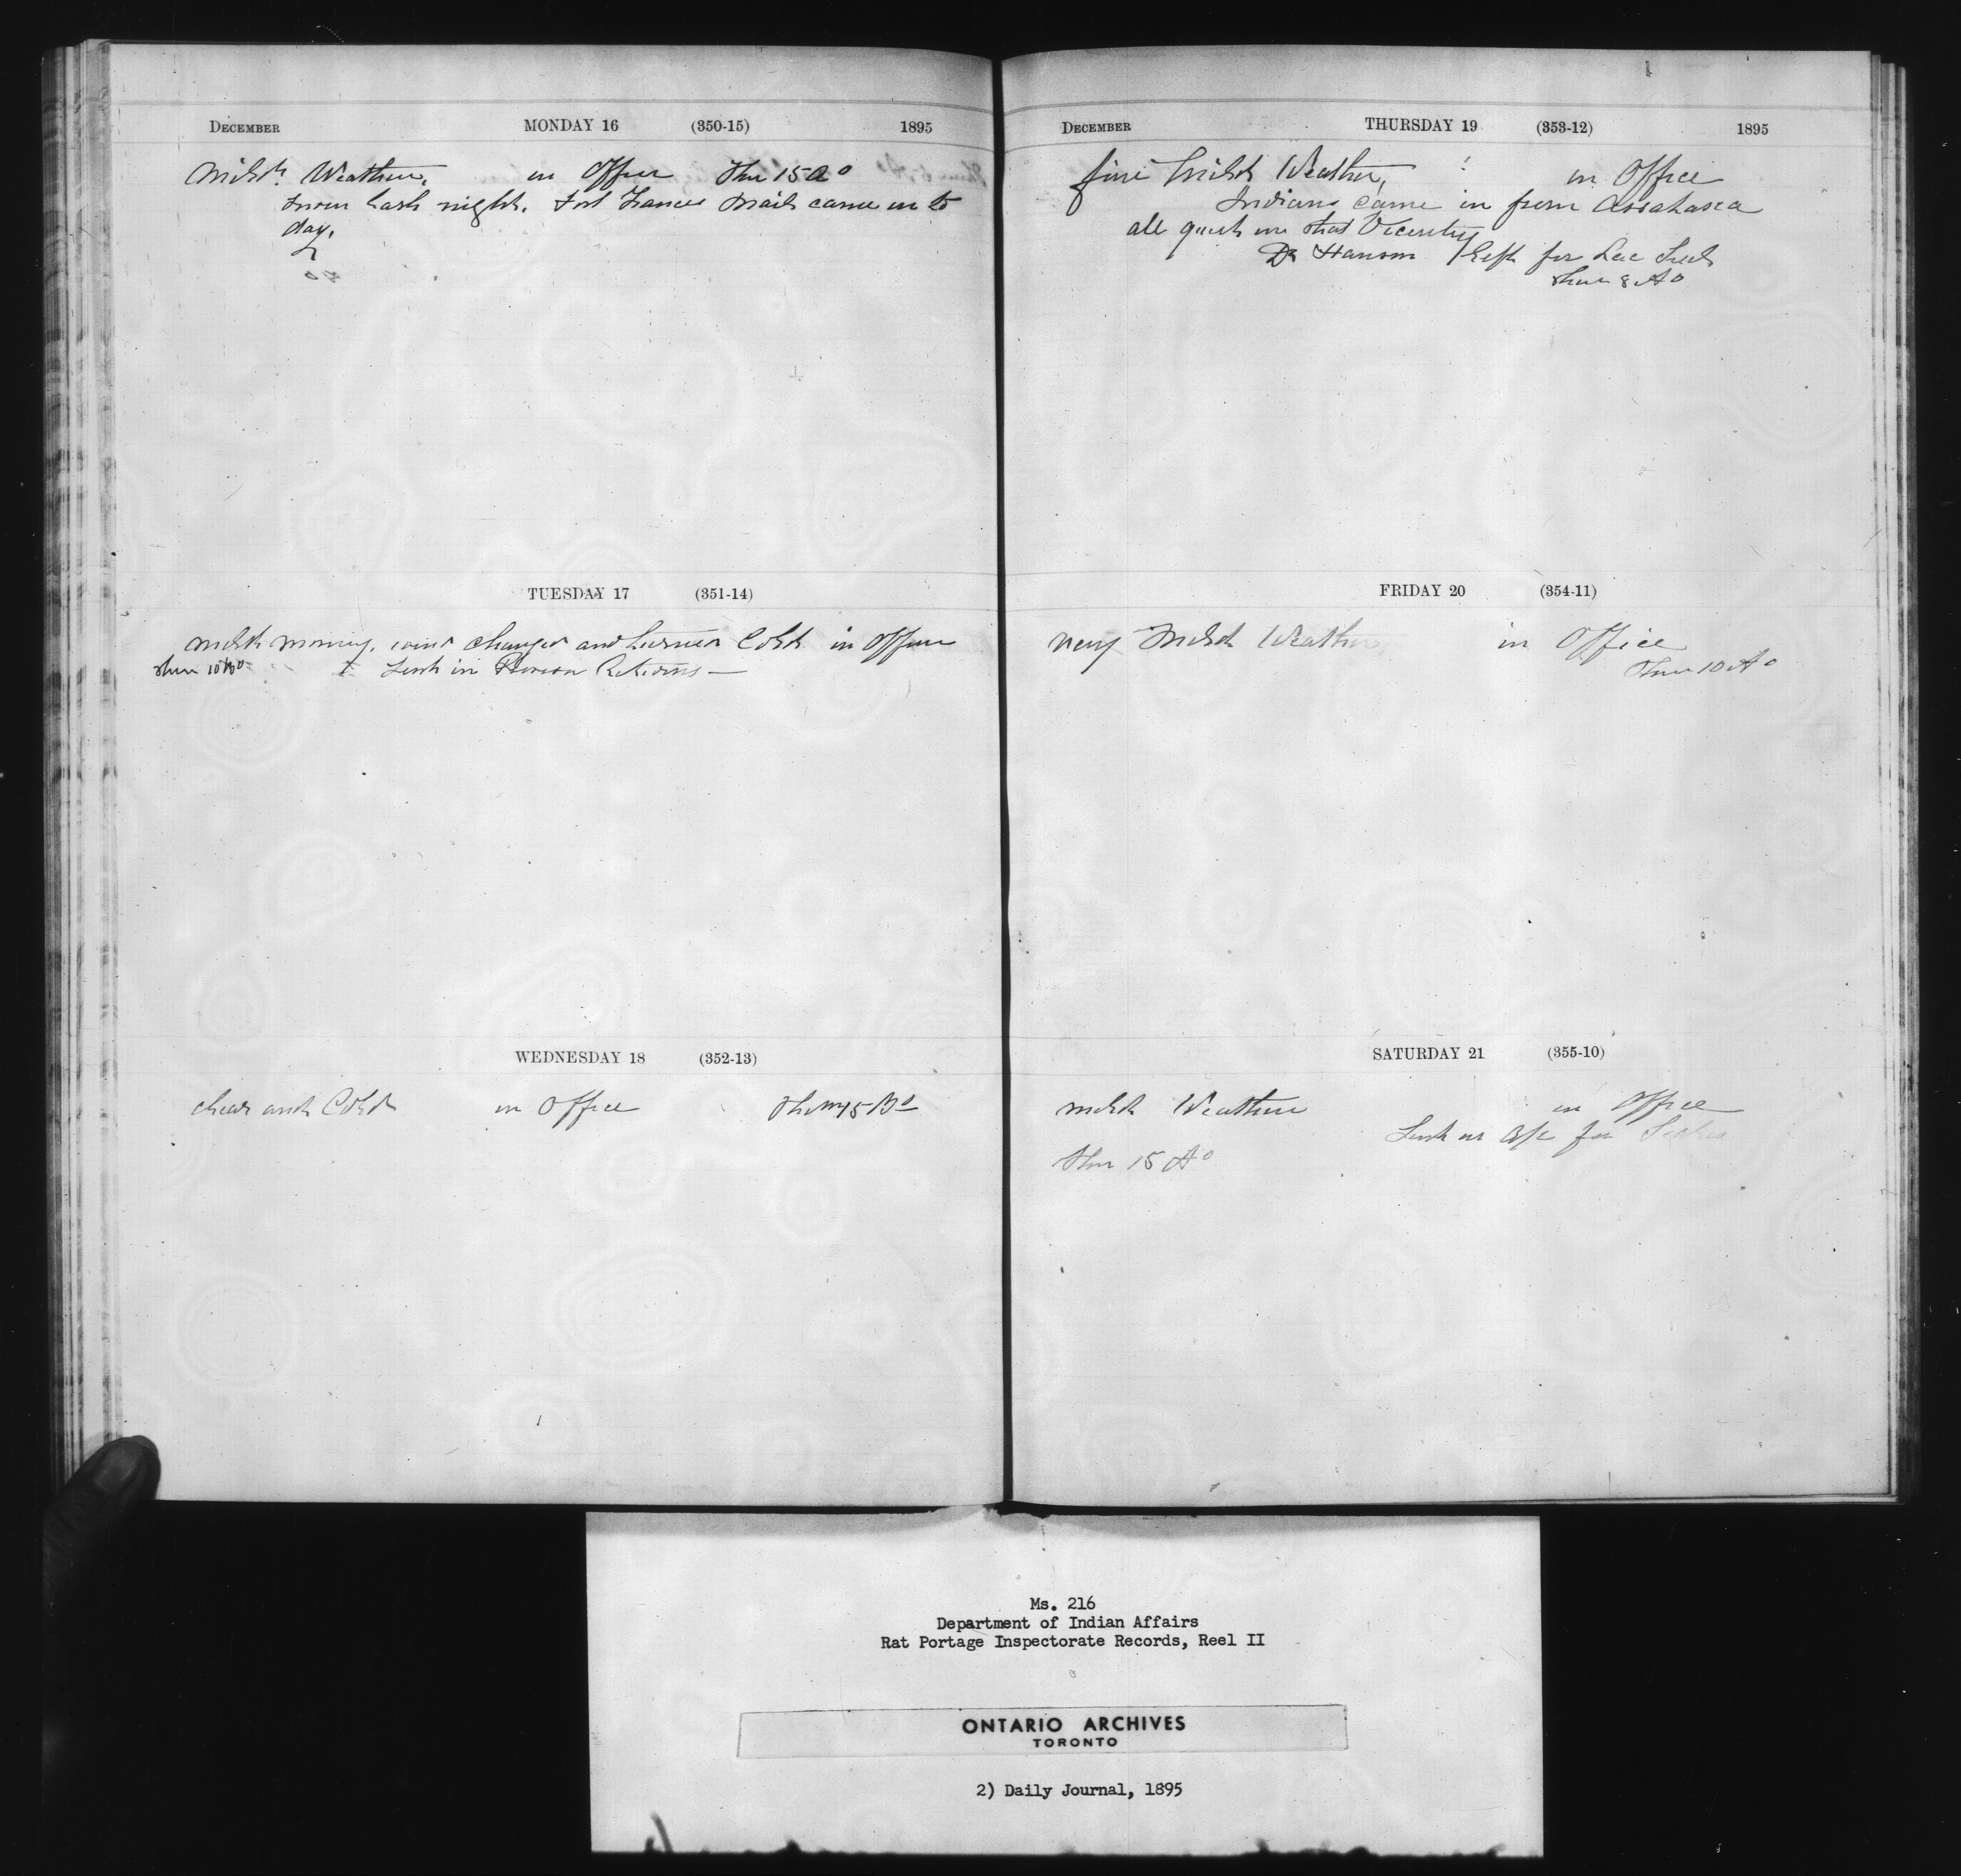 DECEMBER MONDAY 16 (350-15) 1895
Mild Weather, in Office Ther 15 Ao
snow last night. Fort Frances Mail came in to
day.
TUESDAY 17 (351-14)
Mild morning, wind changed and turned Cold in Office
Ther 10 Ao Sent in Returns —
WEDNESDAY 18 (352-13)
Clear and Cold in Office Ther 15 Bo
DECEMBER THURSDAY 19 (353-12) 1895
fine Mild Weather, in Office
Indians came in from Assabasca
all quiet in that Vicinity
Dr Hanson left for Lac Seul
Ther 8 Ao
FRIDAY 20 (354-11)
Very Mild Weather, in Office
Ther 10 Ao
SATURDAY 21 (355-10)
Mild Weather in Office
Sent in a/c for
Ther 15 Ao
Ms. 216
Department of Indian Affairs
Rat Portage Inspectorate Records, Reel II
ONTARIO ARCHIVES
TORONTO
2) Daily Journal, 1895